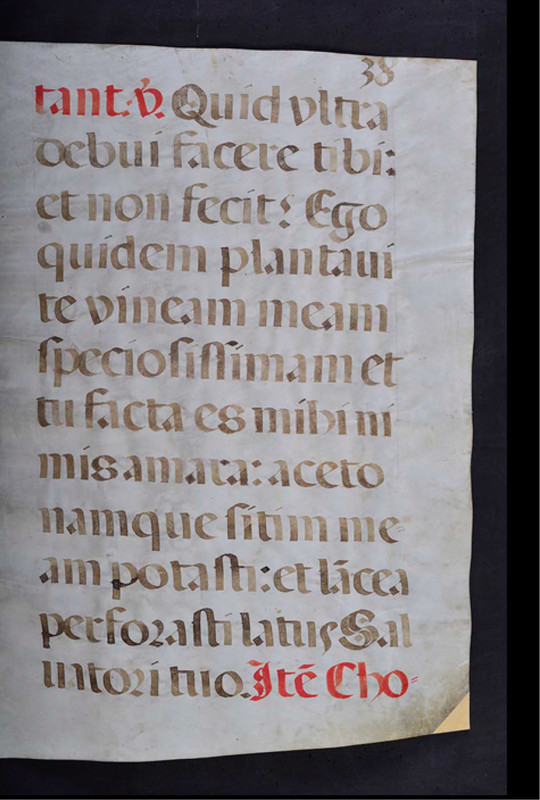 38
tant. ℣. Quid vltra
debui facere tibi:
et non fecit? Ego
quidem plantaui
te vineam meam
speciosissimam et
tu facta es mihi ni
mis amara: aceto
namque sitim me
am potasti: et lācea
perforasti latus Sal
uatori tuo. Itē Cho=